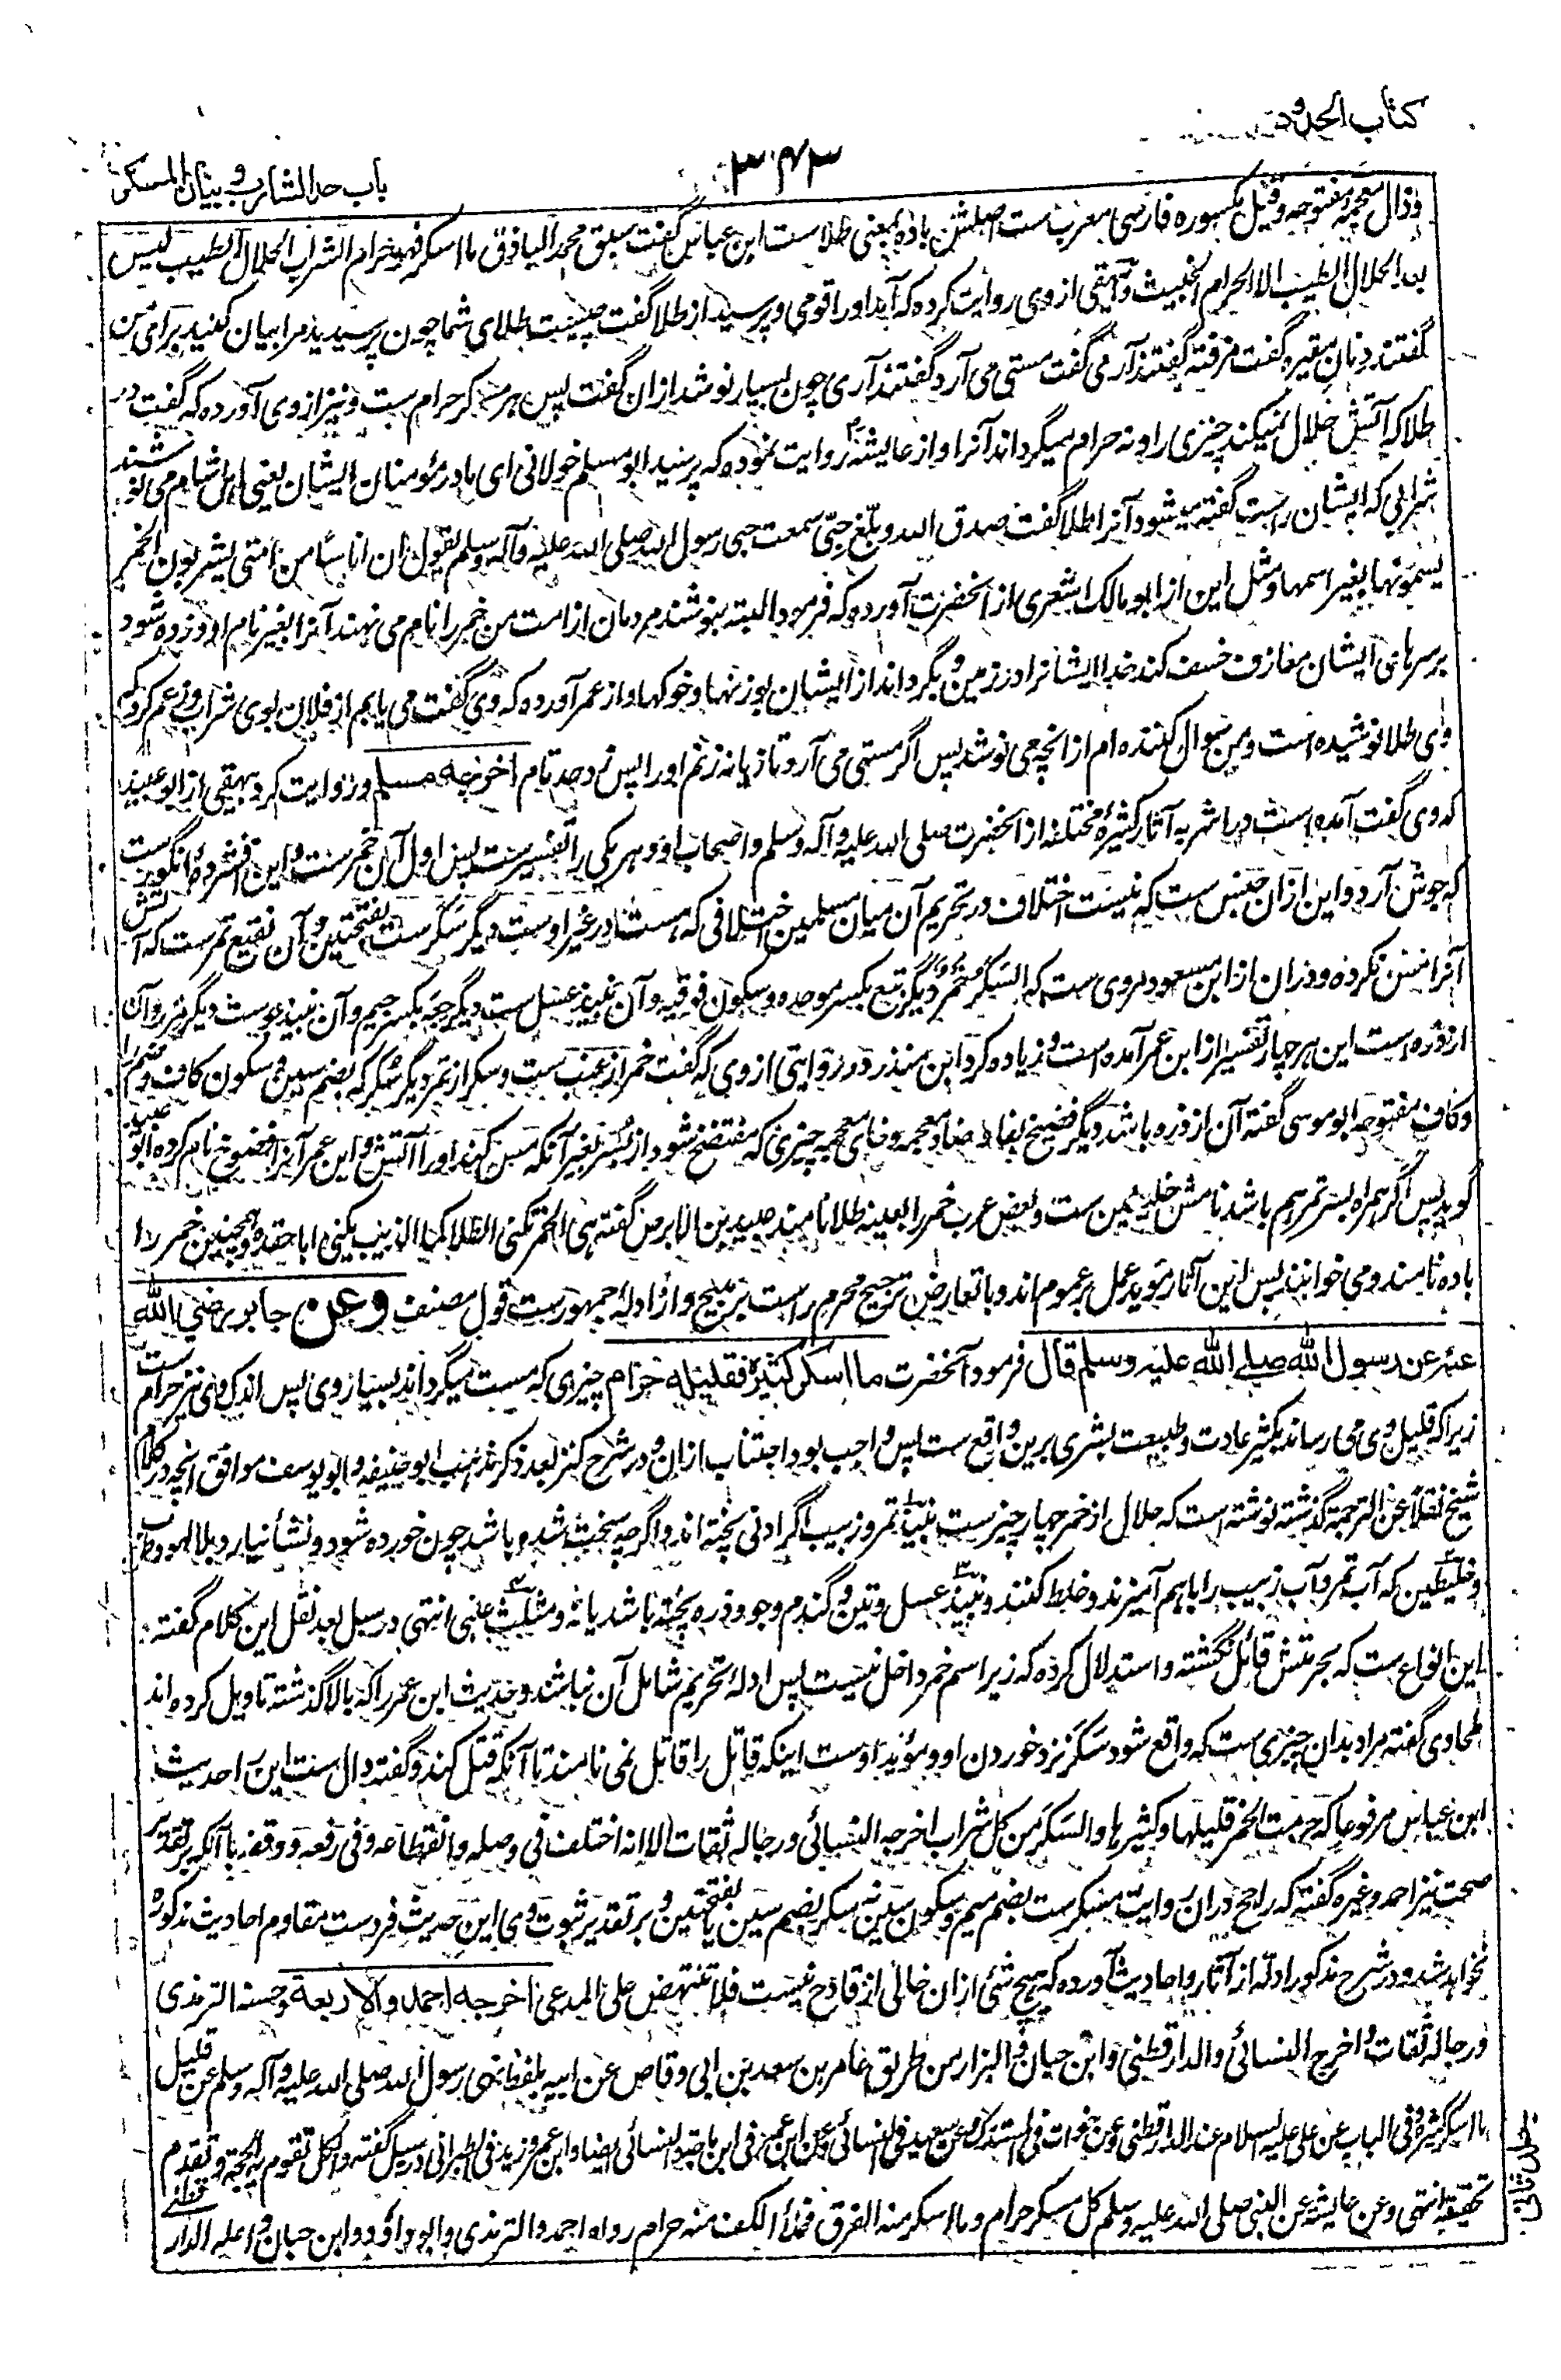 کتاب الحدود
۳۴۳
باب حد الشارب و بیان المسکر
و ذال معجمه مفتوحه و قیل مکسوره فارسی معرب ست اصلش باده بمعنی طلاست ابن عباس گفت سبق محمد الباذق ما اسکر فهو حرام الشراب الحلال الطیب لیس
بعد الحلال الطیب الا الحرام الخبیث و بیهقی از وی روایت کرده که آمد او را قومی و پرسید از طلا گفت چیست طلای شما چون پرسیدید مرا بیان کنید برای من
گفتند دنان مقیره گفت مزفته گفتند آرمی گفت مستی می آرد گفتند آری چون بسیار نوشد ازان گفت پس هر مسکر حرام ست و نیز از وی آورده که گفت در
طلا که آتش حلال نمیکند چیزی را و نه حرام میگرداند آنرا و از عایشه روایت نموده که پرسید ابو مسلم خولانی ای مادر مؤمنان ایشان یعنی اهل شام می نوشند
شرابی که ایشان راست گفته میشود آنرا طلا گفت صدق الله و بلّغ حِبّی سمعت حبی رسول الله صلی الله علیه و آله وسلم یقول ان اناسًا من امتی یشربون الخمر
یسمونها بغیر اسمها و مثل این از ابو مالک اشعری از آنحضرت آورده که فرمود البته بنوشند مردمان از امت من خمر را نام می نهند آنرا بغیر نام او و زده شود
بر سرهای ایشان معازف خسف کند خدا ایشانرا در زمین و بگرداند از ایشان بوزنها و خوکها و از عمر آورده که وی گفت می یابم از فلان بوی شراب و زعم کرد که
وی طلا نوشیده است و من سوال کننده ام از انچه می نوشد پس اگر مستی می آرد تازیانه زنم او را پس زد حد تام اخرجه مسلم و روایت کرد بیهقی از ابو عبید
که وی گفت آمده است در اشربه آثار کثیرهٔ مختلفه از آنحضرت صلی الله علیه و آله وسلم و اصحاب او و هر یکی را تفسیرست پس اول آن خمرست و این افشردهٔ انگورست
که جوش آرد و این ازان جنس ست که نیست اختلاف در تحریم آن میان مسلمین اختلافی که هست در غیر اوست دیگر سَکَرست بفتحتین و آن نقیع تمرست که آتش
آنرا مس نکرده و دران از ابن مسعود مروی ست که السَکَر خمر دیگر بتع بکسر موحده و سکون فوقیه و آن نبیذ عسل ست دیگر جعه بکسر جیم و آن نبیذ جوست دیگر مزر و آن
از ذره است این هر چار تفسیر از ابن عمر آمده است و زیاده کرد ابن منذر در روایتی از وی که گفت خمر از عنب ست و سکر از تمر دیگر سکرکه بضم سین و سکون کاف و ضم را
و کاف مفتوحه ابو موسی گفته آن از ذره باشد دیگر فضیخ بفاء و ضاد معجمه و خای معجمه چیزی که مفتضخ شود از بُسر بغیر آنکه مس کند او را آتش و ابن عمر آنرا فضوخ نام کرده ابو عبید
گوید پس اگر همراه بسر تمر هم باشد نامش خلیطین ست و بعض عرب خمر را بعینه طلا نامیند عبید بن الابرص گفته هی الخمر تکنی الطلا کما الذئب یکنی ابا جعده و همچنین خمر را
باده نامند و می خوانند پس این آثار مؤید عمل بر عموم اند و با تعارض ترجیح محرم راست بر مبیح و از ادلهٔ جمهورست قول مصنف وعن جابر رضی الله
عنہ عن رسول الله صلی الله علیه وسلم قال فرمود آنحضرت ما اسکر کثیره فقلیله حرام چیزی که مست میگرداند بسیار وی پس اندک وی نیز حرام ست
زیرا که قلیل وی می رساند بکثیر عادت و طبیعت بشری برین واقع ست پس واجب بود اجتناب ازان و در شرح کنز بعد ذکر مذهب ابو حنیفه و ابو یوسف موافق انچه در کلام
شیخ نقلاً عن الترجمة گذشته نوشته است که حلال از خمر چار چیزست نبیذ تمر و زبیب اگر ادنی پخته اند و اگرچه سخت شده باشد چون خورده شود و نشأ نیارد و بلا لهو و طرب
و خلیطین که آب تمر و آب زبیب را باهم آمیزند و خلط کنند و نبیذ عسل و تین و گندم و جو و ذره پخته باشد یا نه و مثلث عنبی انتهی در سبل بعد نقل این کلام گفته
این انواع ست که بحرمتش قائل نگشته و استدلال کرده که زیر اسم خمر داخل نیست پس ادلهٔ تحریم شامل آن نباشند و حدیث ابن عمر را که بالا گذشته تاویل کرده اند
طحاوی گفته مراد بدان چیزی ست که واقع شود سَکَر نزد خوردن او و مؤید اوست اینکه قاتل را قاتل نمی نامند تا آنکه قتل کند و گفته دال ست این را حدیث
ابن عباس مرفوعا که حرمت الخمر قلیلها و کثیرها والسَکَر من کل شراب اخرجه النسائی و رجاله ثقات الا انه اختلف فی وصله وانقطاعه وفی رفعه ووقفه با آنکه بر تقدیر
صحت نیز احمد و غیره گفته که راجح دران روایت مسکرست بضم میم و سکون سین نه سکر بضم سین یا بفتحتین و بر تقدیر ثبوت وی این حدیث فردست مقاوم احادیث مذکوره
نخواهد شد و در شرح مذکور ادله از آثار و احادیث آورده که هیچ شئ ازان خالی از قادح نیست فلا تنتهض علی المدعی اخرجه احمد والاربعة وحسنه الترمذی
ورجاله ثقات واخرج النسائی والدارقطنی وابن حبان والبزار من طریق عامر بن سعد بن ابی وقاص عن ابیه بلفظ نهی رسول الله صلی الله علیه و آله وسلم عن قلیل
ما اسکر کثیره وفی الباب عن علی علیه السلام عند الدارقطنی وعن خوات فی المستدرک وعن سعید فی النسائی وعن ابن عمر فی ابن ماجة والنسائی ایضا وابن عمر وزید فی الطبرانی در سبل گفته والکل تقوم به الحجة وتقدم
تحقیقه انتهی وعن عایشة عن النبی صلی الله علیه وسلم کل مسکر حرام وما اسکر منه الفرق فملأ الکف منه حرام رواه احمد والترمذی وابو داؤد وابن حبان واعله الدارقطنی